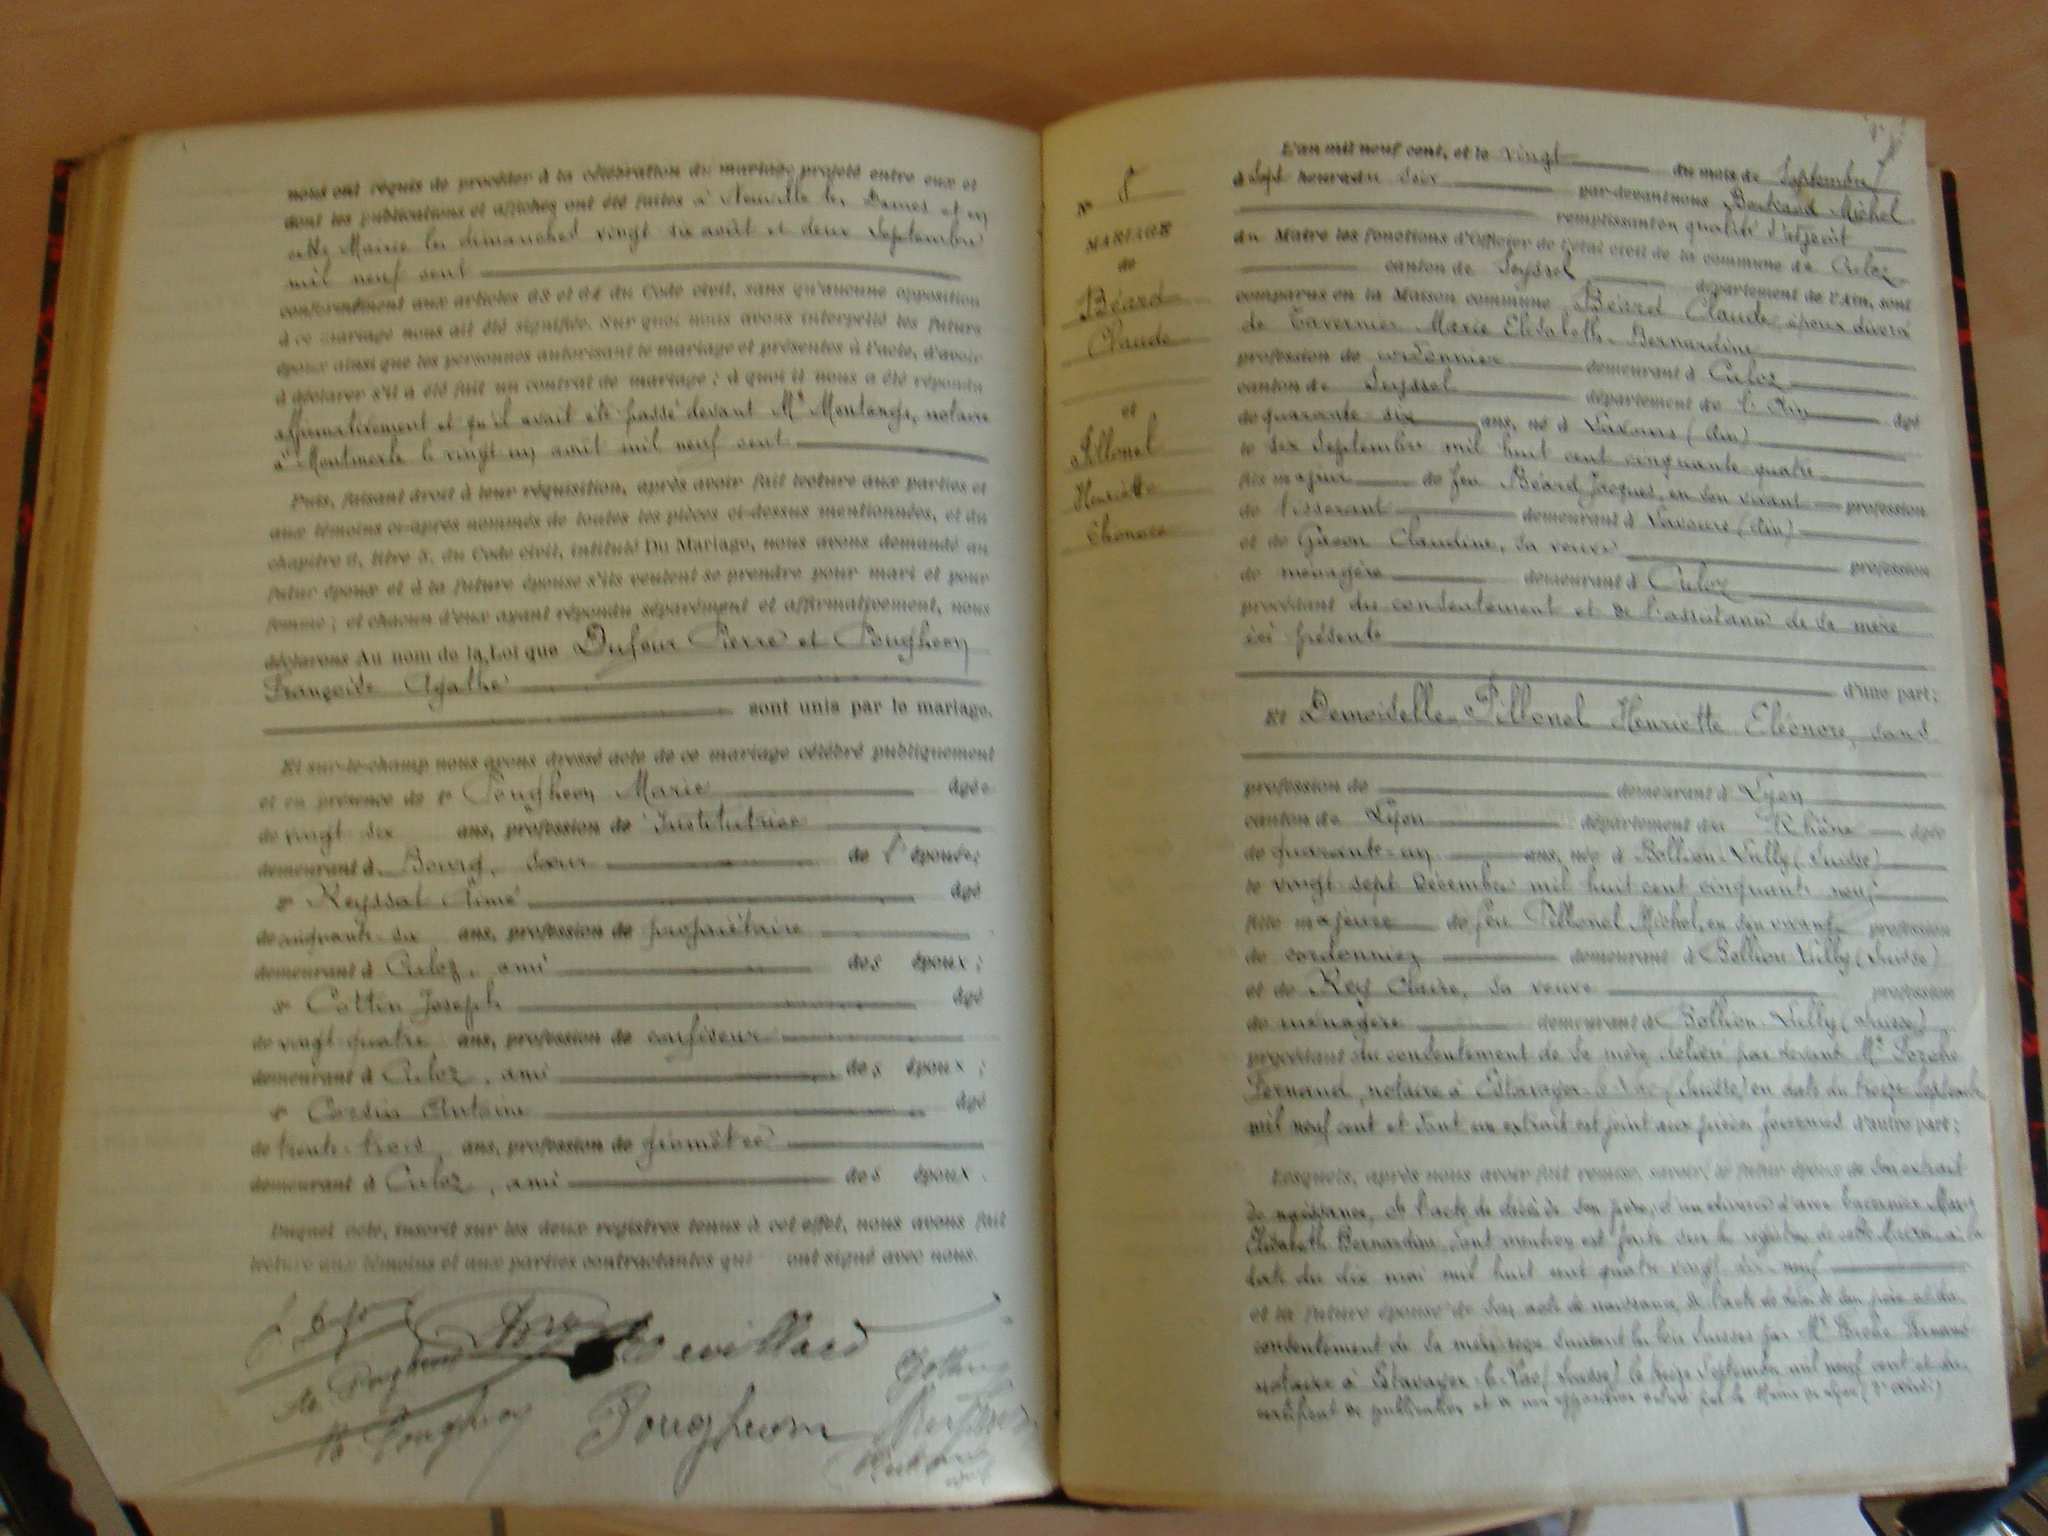 nous ont requis de procéder à la célébration du mariage projeté entre eux et
dont les publications et affiches ont été faites à Neuville les Dames et en
cette Mairie les dimanches vingt six août et deux Septembre
mil neuf cent
conformément aux articles 63 et 64 du Code civil, sans qu'aucune opposition
à ce mariage nous ait été signifiée. Sur quoi nous avons interpellé les futurs
époux ainsi que les personnes autorisant le mariage et présentes à l'acte, d'avoir
à déclarer s'il a été fait un contrat de mariage; à quoi il nous a été répondu
affirmativement et qu'il avait été passé devant Me, notaire
à Montmerle le vingt un août mil neuf cent
Puis, faisant droit à leur réquisition, après avoir fait lecture aux parties et
aux témoins ci-après nommés de toutes les pièces ci-dessus mentionnées, et du
chapitre 6, titre 5, du Code civil, intitulé Du Mariage, nous avons demandé au
futur époux et à la future épouse s'ils veulent se prendre pour mari et pour
femme; et chacun d'eux ayant répondu séparément et affirmativement, nous
déclarons Au nom de la Loi que Dufour Pierre et Pougheon
Françoise Agathe
sont unis par le mariage.
Et sur-le-champ nous avons dressé acte de ce mariage célébré publiquement
et en présence de 1° Pougheon Marie âgée
de vingt six ans, profession de Institutrice
demeurant à Bourg, sœur de l'épouse;
2° Reyssat Aimé âgé
de cinquante six ans, profession de propriétaire
demeurant à Culoz, ami des époux;
3° Cottin Joseph âgé
de vingt quatre ans, profession de confiseur
demeurant à Culoz, ami des époux;
4° Antoine âgé
de trente trois ans, profession de géomètre
demeurant à Culoz, ami des époux.
Duquel acte, inscrit sur les deux registres tenus à cet effet, nous avons fait
lecture aux témoins et aux parties contractantes qui ont signé avec nous.
Pougheon
Pougheon
Pougheon
N° 8
MARIAGE
de
Béard
Claude
et
Pillonel
Henriette
Eléonore
L'an mil neuf cent, et le vingt du mois de Septembre
à Sept heures du soir par-devant nous Bertrand Michel
remplissant en qualité d'adjoint
du Maire les fonctions d'Officier de l'état civil de la commune de Culoz
canton de Seyssel département de l'Ain, sont
comparus en la Maison commune Béard Claude, époux divorcé
de Tavernier Marie Elisabeth Bernardine
profession de cordonnier demeurant à Culoz
canton de Seyssel département de l'Ain âgé
de quarante six ans, né à Lavours (Ain)
le six Septembre mil huit cent cinquante quatre
fils majeur de feu Béard Jacques, en son vivant profession
de tisserant demeurant à Lavours (Ain)
et de Claudine, sa veuve profession
de ménagère demeurant à Culoz
procédant du consentement et de l'assistance de sa mère
ici présente
d'une part;
Et Demoiselle Pillonel Henriette Eléonore, sans
profession de demeurant à Lyon
canton de Lyon département du Rhône âgée
de quarante-un ans, née à Bollion-Lully (Suisse)
le vingt sept Décembre mil huit cent cinquante neuf
fille majeure de feu Pillonel Michel, en son vivant profession
de cordonnier demeurant à Bollion-Lully (Suisse)
et de Rey Claire, sa veuve profession
de ménagère demeurant à Bollion-Lully (Suisse)
procédant du consentement de sa mère délivré par devant Me
Fernand, notaire à Estavayer-le-Lac (Suisse) en date du treize Septembre
mil neuf cent et dont un extrait est joint aux pièces fournies d'autre part;
Lesquels, après nous avoir fait remise, savoir: le futur époux de son extrait
de naissance, de l'acte de décès de son père, d'un divorce d'avec Tavernier Marie
Elisabeth Bernardine, dont mention est faite sur les registres de cette Mairie à la
date du dix mai mil huit cent quatre vingt dix-neuf
et la future épouse de son acte de naissance, de l'acte de décès de son père et du
consentement de sa mère reçu suivant les lois Suisses par Me Fernand
notaire à Estavayer-le-Lac (Suisse) le treize Septembre mil neuf cent et du
certificat de publication et de non opposition délivré par le Maire de Lyon